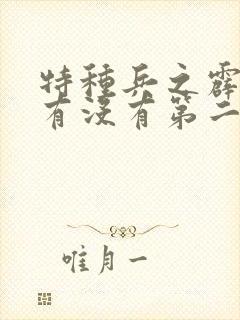 特种兵之霹
有没有第二
唯月一